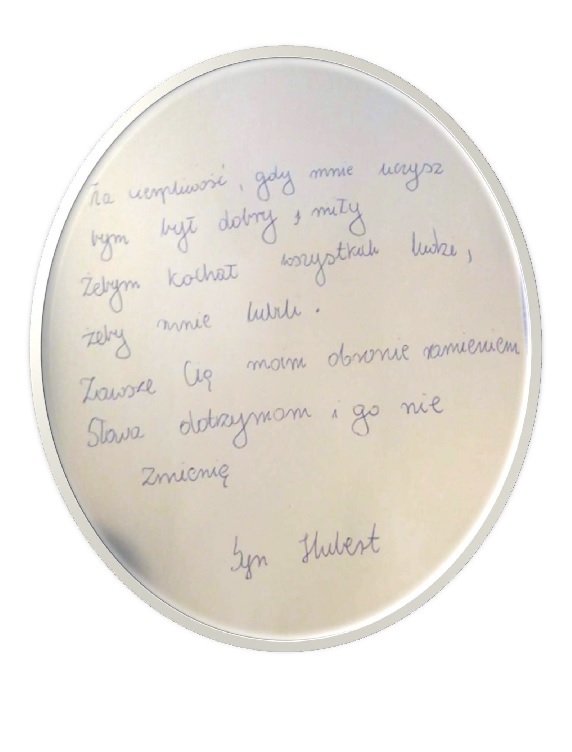 Za cierpliwość, gdy mnie uczysz
bym był dobry i miły
Żebym kochał wszystkich ludzi,
żeby mnie lubili.
Zawsze Cię moim obronię ramieniem
Słowa dotrzymam i go nie
zmienię
Syn Hubert